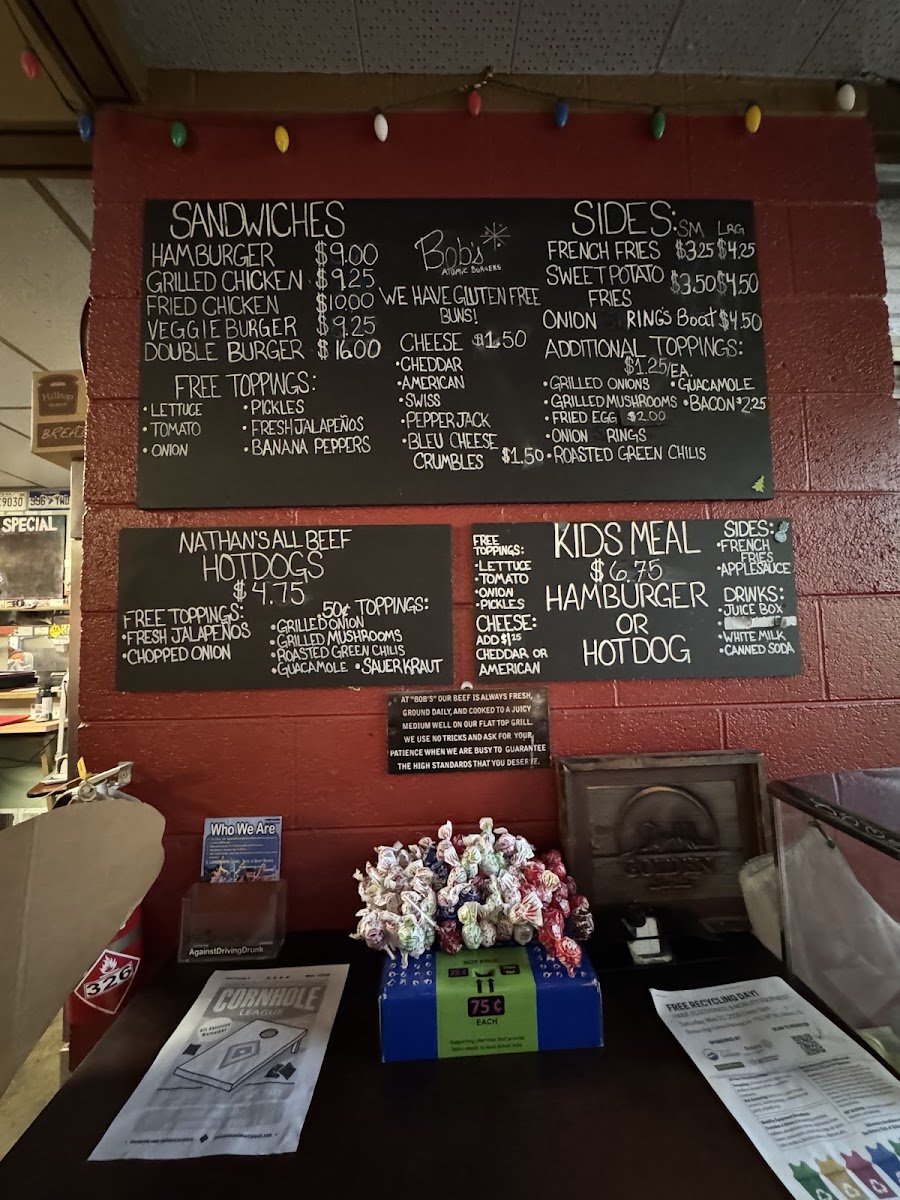 SANDWICHES
HAMBURGER $9.00
GRILLED CHICKEN $9.25
FRIED CHICKEN $10.00
VEGGIE BURGER $9.25
DOUBLE BURGER $16.00
FREE TOPPINGS:
• LETTUCE
• TOMATO
• ONION
• PICKLES
• FRESH JALAPEÑOS
• BANANA PEPPERS
Bob's
ATOMIC BURGERS
WE HAVE GLUTEN FREE
BUNS!
CHEESE $1.50
• CHEDDAR
• AMERICAN
• SWISS
• PEPPER JACK
• BLEU CHEESE
CRUMBLES $1.50
SIDES: SM LRG
FRENCH FRIES $3.25 $4.25
SWEET POTATO $3.50 $4.50
FRIES
ONION RING'S Boat $4.50
ADDITIONAL TOPPINGS:
$1.25/EA.
• GRILLED ONIONS • GUACAMOLE
• GRILLED MUSHROOMS • BACON $2.25
• FRIED EGG $2.00
• ONION RINGS
• ROASTED GREEN CHILIS
Hilltop
BREA
9030
SPECIAL
NATHAN'S ALL BEEF
HOTDOGS
$4.75
FREE TOPPINGS:
• FRESH JALAPEÑOS
• CHOPPED ONION
.50¢ TOPPINGS:
• GRILLED ONION
• GRILLED MUSHROOMS
• ROASTED GREEN CHILIS
• GUACAMOLE • SAUER KRAUT
FREE
TOPPINGS:
• LETTUCE
• TOMATO
• ONION
• PICKLES
CHEESE:
ADD $1.25
CHEDDAR OR
AMERICAN
KIDS MEAL
$6.75
HAMBURGER
OR
HOTDOG
SIDES:
• FRENCH
FRIES
• APPLESAUCE
DRINKS:
• JUICE BOX
• WHITE MILK
• CANNED SODA
AT "BOB'S" OUR BEEF IS ALWAYS FRESH,
GROUND DAILY, AND COOKED TO A JUICY
MEDIUM WELL ON OUR FLAT TOP GRILL.
WE USE NO TRICKS AND ASK FOR YOUR
PATIENCE WHEN WE ARE BUSY TO GUARANTEE
THE HIGH STANDARDS THAT YOU DESERVE.
Who We Are
AgainstDrivingDrunk
326
CORNHOLE
LEAGUE
75¢
EACH
GOLDEN
FREE RECYCLING DAY!